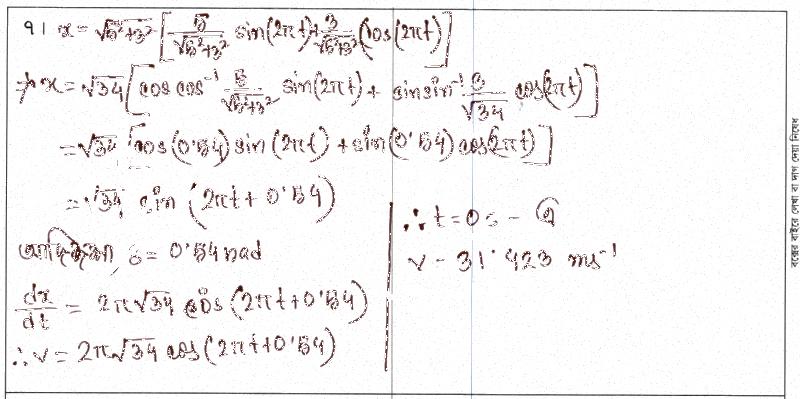 ৭। x = √5²+3² [ 5/√5²+3² sin(2πt) + 3/√5²+3² cos(2πt) ]
⇒ x = √34 [ cos cos⁻¹ 5/√5²+3² sin(2πt) + sin sin⁻¹ 3/√34 cos(2πt) ]
= √34 [ cos(0.54) sin(2πt) + sin(0.54) cos(2πt) ]
= √34 sin(2πt + 0.54)
আদিদশা, δ = 0.54 rad
dx/dt = 2π√34 cos(2πt+0.54)
∴ v = 2π√34 cos(2πt+0.54)
∴ t = 0 s - এ
v = 31.423 ms⁻¹
বক্সের বাইরে লেখা বা দাগ দেয়া নিষেধ